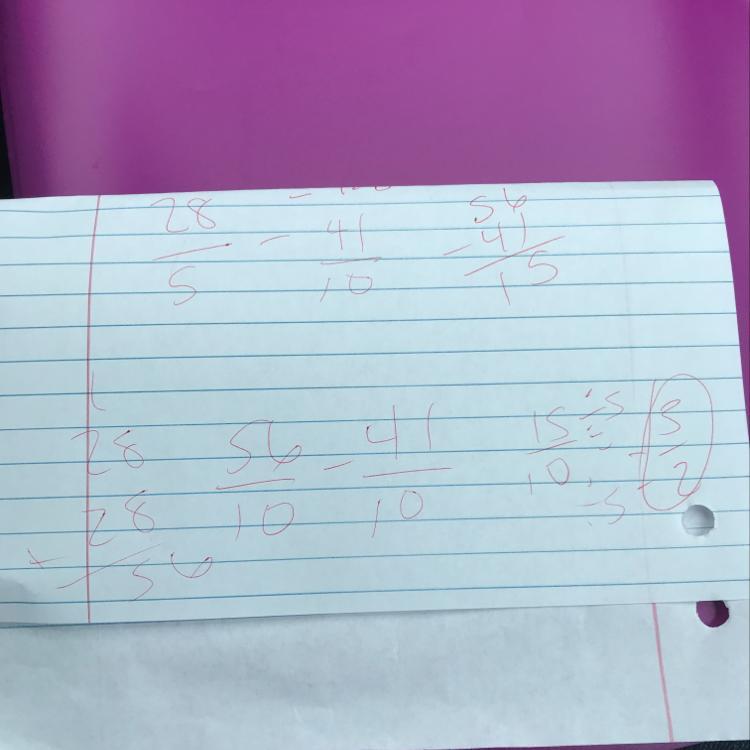 28/5 - 41/10
56
- 41
15
1
28
+ 28
56
56/10 - 41/10
15/10 ÷5/÷5 = 3/2